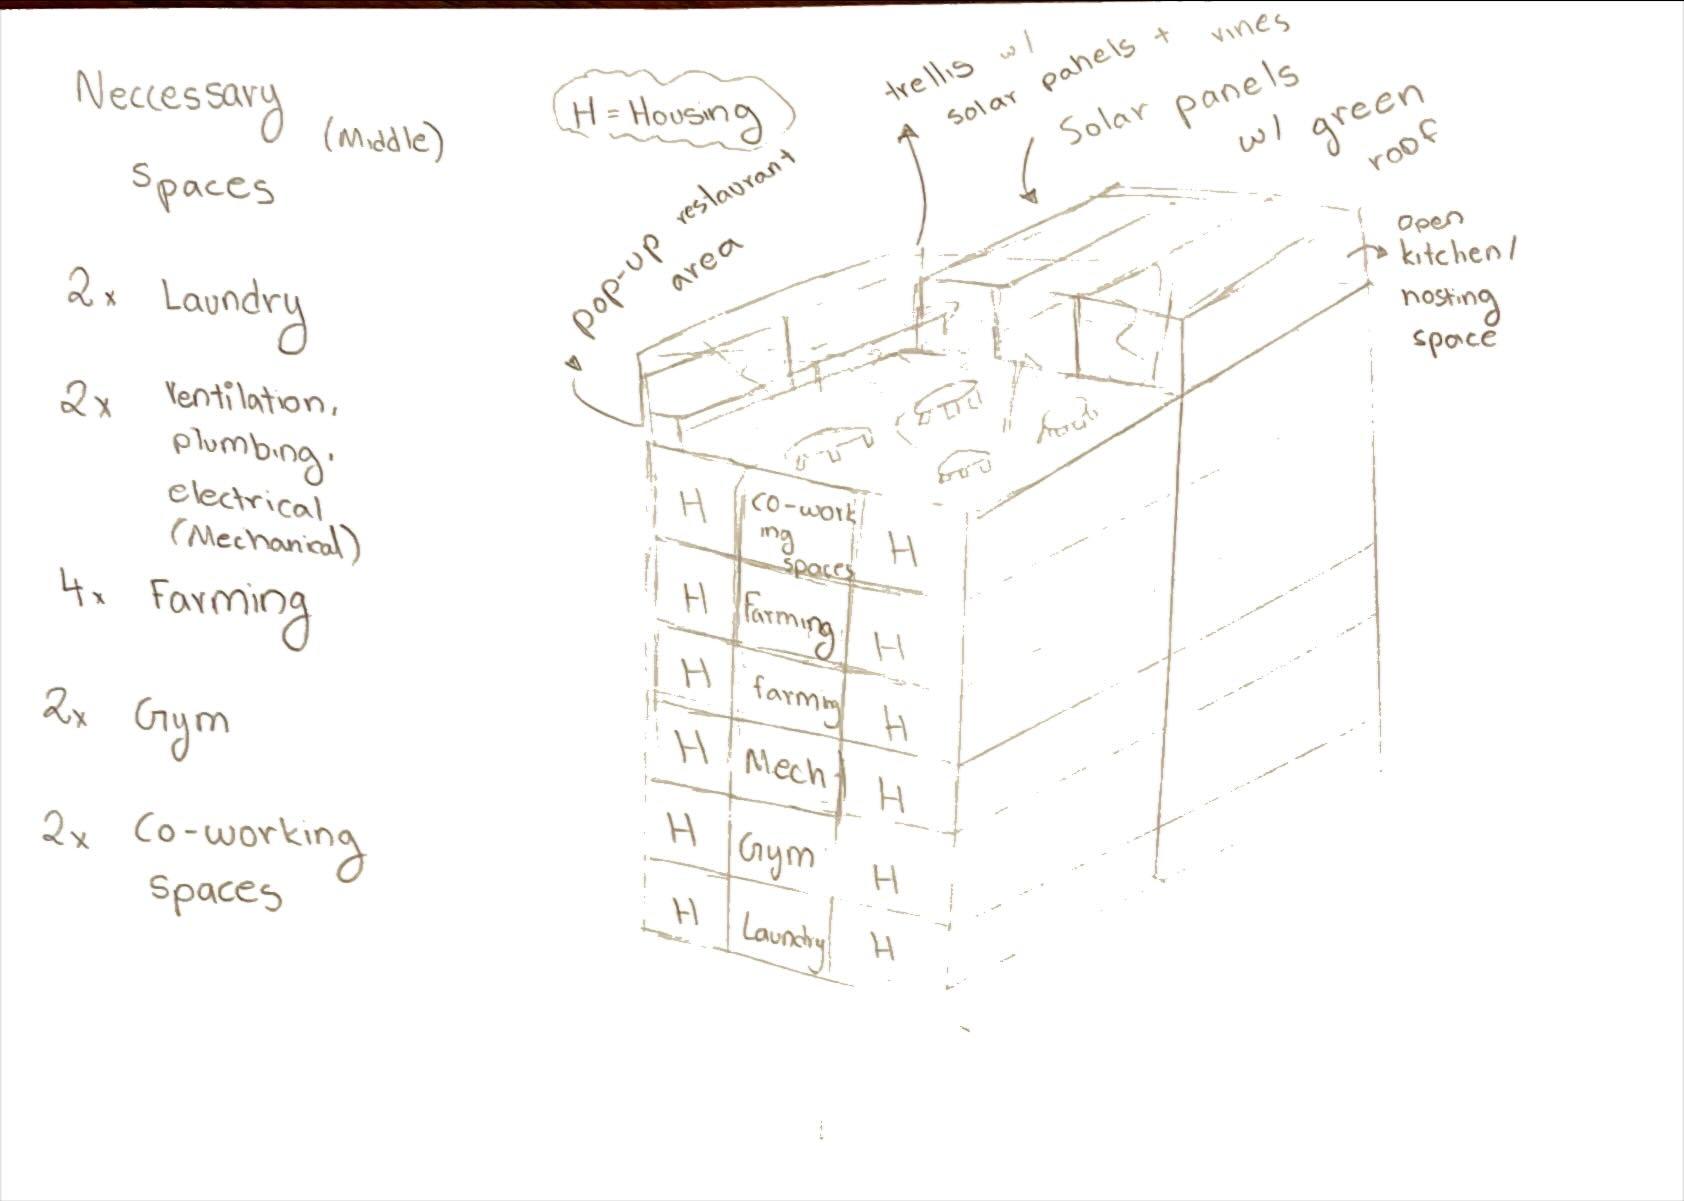 Neccessary
(Middle)
Spaces
2x Laundry
2x Ventilation,
plumbing,
electrical
(Mechanical)
4x Farming
2x Gym
2x Co-working
Spaces
H = Housing
pop-up restaurant
area
trellis w/
solar panels + vines
Solar panels
w/ green
roof
open
kitchen/
hosting
space
H
co-work
ing
spaces
H
H
Farming
H
H
farming
H
H
Mech
H
H
Gym
H
H
Laundry
H